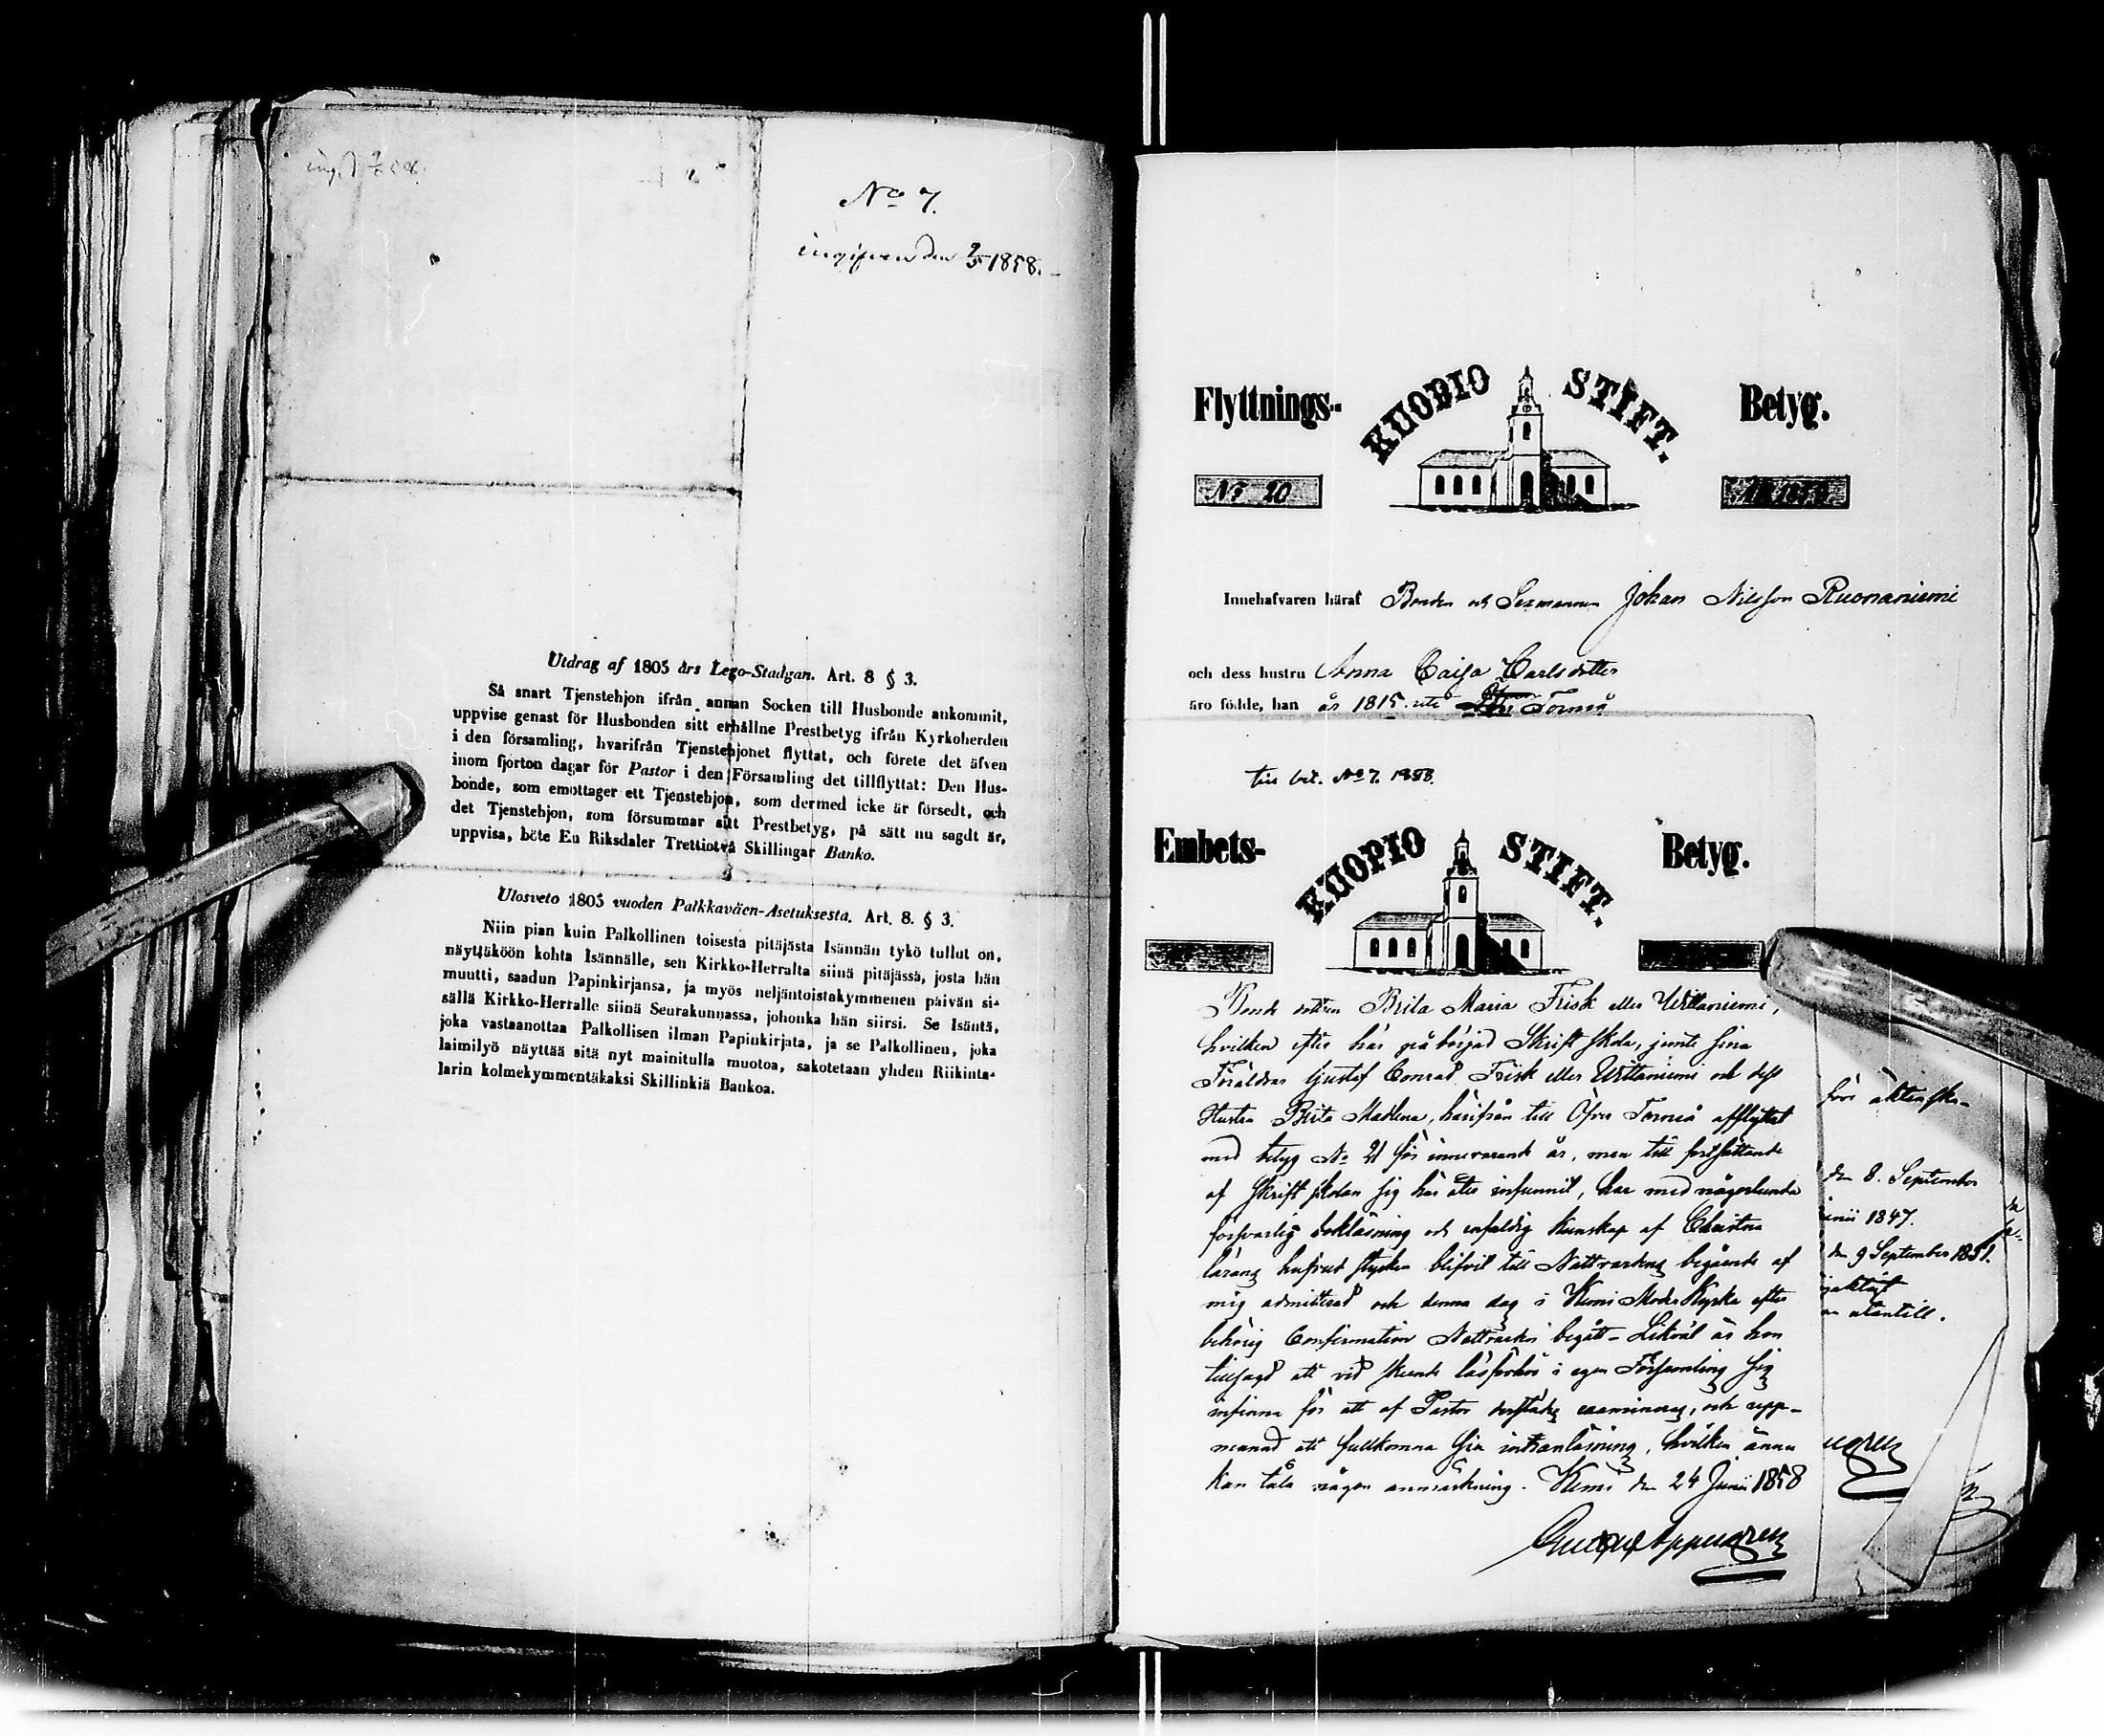 No 7.
ingifven den 2/5 1858.
Utdrag af 1805 års Lego-Stadgan. Art. 8 § 3.
Så snart Tjenstehjon ifrån annan Socken till Husbonde ankommit,
uppvise genast för Husbonden sitt erhållne Prestbetyg ifrån Kyrkoherden
i den församling, hvarifrån Tjenstehjonet flyttat, och förete det äfven
inom fjorton dagar för Pastor i den Församling det tillflyttat: Den Hus-
bonde, som emottager ett Tjenstehjon, som dermed icke är försedt, och
det Tjenstehjon, som försummar sitt Prestbetyg, på sätt nu sagdt är,
uppvisa, böte En Riksdaler Trettiotvå Skillingar Banko.
Ulosveto 1805 vuoden Palkkaväen-Asetuksesta. Art. 8. § 3.
Niin pian kuin Palkollinen toisesta pitäjästa Isännän tykö tullut on,
näyttäköön kohta Isännälle, sen Kirkko-Herralta siinä pitäjässä, josta hän
muutti, saadun Papinkirjansa, ja myös neljäntoistakymmenen päivän si-
sällä Kirkko-Herralle siinä Seurakunnassa, johonka hän siirsi. Se Isäntä,
joka vastaanottaa Palkollisen ilman Papinkirjata, ja se Palkollinen, joka
laimilyö näyttää sitä nyt mainitulla muotoa, sakotetaan yhden Riikinta-
larin kolmekymmentäkaksi Skillinkiä Bankoa.
Flyttnings- KUOPIO STIFT. Betyg.
No 20
Innehafvaren häraf Bonden och Sexmannen Johan Nilsson Ruonaniemi
och dess hustru Anna Caisa Carlsdotter
äro födde, han år 1815 uti Torneå
till bet. No 7. 1858.
Embets- KUOPIO STIFT. Betyg.
Bonde dottren Brita Maria Frisk eller Wittaniemi,
hvilken efter här påbörjad Skriftskola, jemte sina
Föräldrar Gustaf Conrad Frisk eller Wittaniemi och dess
Hustru Brita Madlena, härifrån till Öfver Torneå afflyttat
med betyg No 21 för innevarande år, men till fortsättande
af Skriftskolan sig här åter infunnit, har med någorlunda
försvarlig bokläsning och enfaldig kunskap af Christna
lärans hufvudstycken blifvit till Nattvardens begående af
mig admitterad och denna dag i Kemi Moder Kyrka efter
behörig Confirmation Nattvarden begått - Likväl är hon
tillsagd att vid skeende läsförhör i egen Församling sig
infinna för att af Pastor derstädes examineras, och upp-
manad att fullkomna sin innanläsning, hvilken ännu
kan tåla någon anmärkning. Kemi den 24 Junii 1858
för äktenska-
den 8. September
1847.
den 9 September 1851.
utantill.